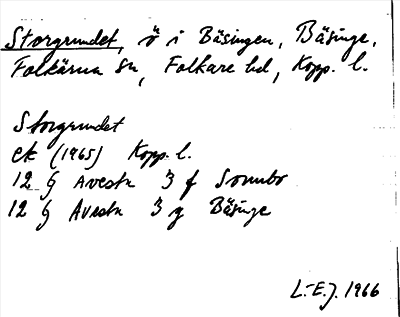 Storgrundet, ö i Bäsingen, Bäsinge,
Folkärna sn, Folkare hd, Kopp. l.
Storgrundet
ek (1965) Kopp. l.
12 G Avesta 3 f Sonnbo
12 G Avesta 3 g Bäsinge
L.-E.J. 1966